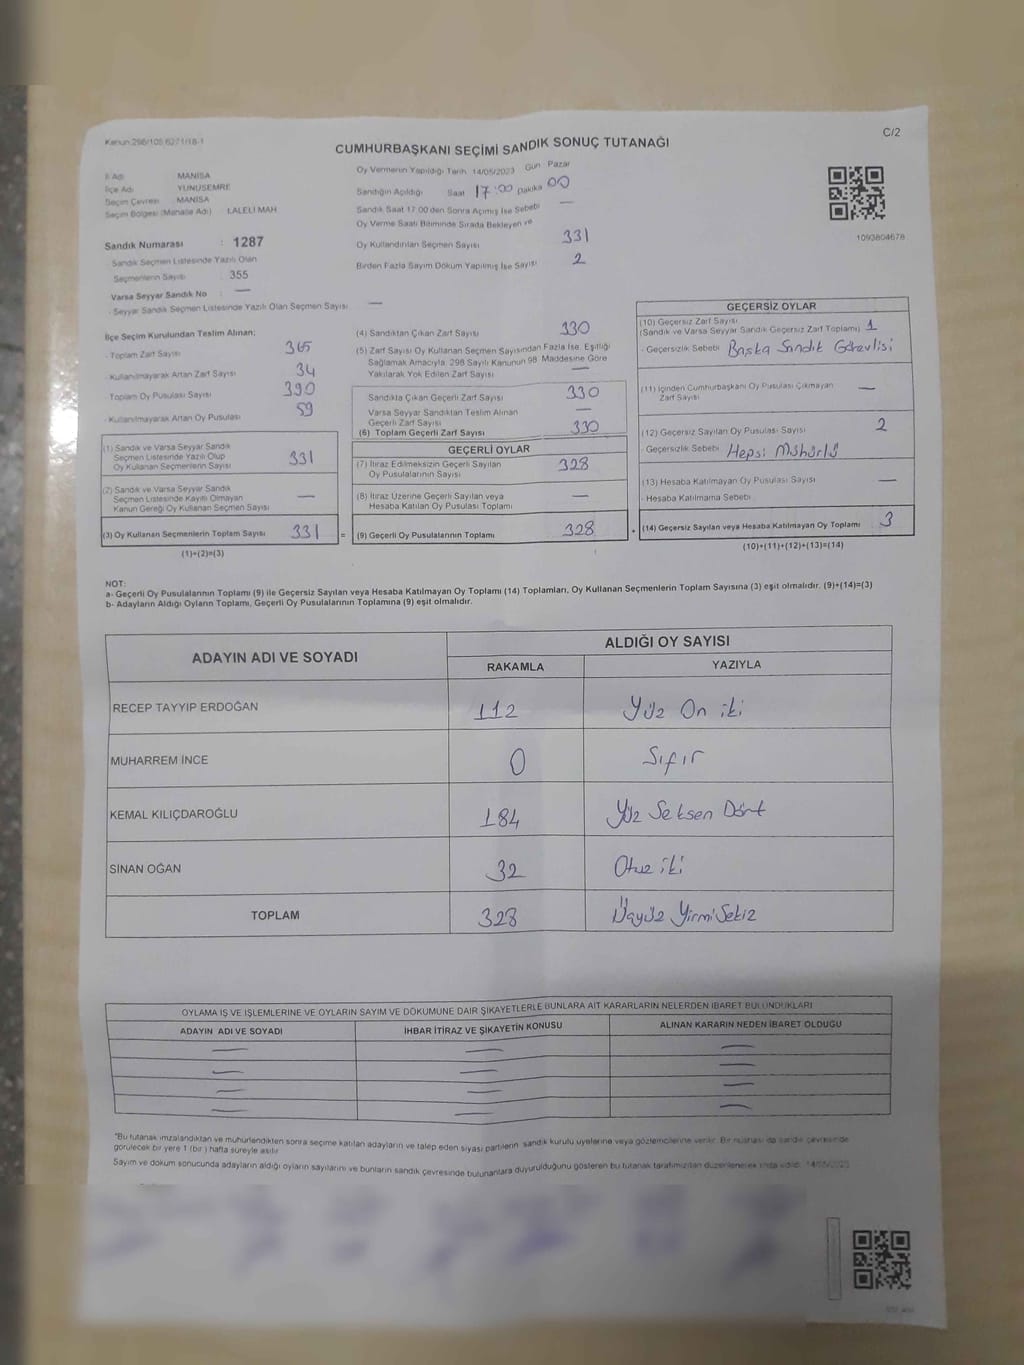 Kanun 298/105 6271/18-1
C/2
CUMHURBAŞKANI SEÇİMİ SANDIK SONUÇ TUTANAĞI
İl Adı MANİSA
İlçe Adı YUNUSEMRE
Seçim Çevresi MANİSA
Seçim Bölgesi (Mahalle Adı) LALELİ MAH
Sandık Numarası : 1287
- Sandık Seçmen Listesinde Yazılı Olan
Seçmenlerin Sayısı : 355
Varsa Seyyar Sandık No : —
- Seyyar Sandık Seçmen Listesinde Yazılı Olan Seçmen Sayısı —
Oy Vermenin Yapıldığı Tarih 14/05/2023 Gün Pazar
Sandığın Açıldığı Saat 17:00 Dakika 00
Sandık Saat 17:00 den Sonra Açılmış İse Sebebi —
Oy Verme Saati Bitiminde Sırada Bekleyen ve
Oy Kullandırılan Seçmen Sayısı 331
Birden Fazla Sayım Döküm Yapılmış İse Sayısı 2
1093804678
İlçe Seçim Kurulundan Teslim Alınan;
- Toplam Zarf Sayısı 365
- Kullanılmayarak Artan Zarf Sayısı 34
- Toplam Oy Pusulası Sayısı 390
- Kullanılmayarak Artan Oy Pusulası 59
(1) Sandık ve Varsa Seyyar Sandık
Seçmen Listesinde Yazılı Olup
Oy Kullanan Seçmenlerin Sayısı 331
(2) Sandık ve Varsa Seyyar Sandık
Seçmen Listesinde Kayıtlı Olmayan
Kanun Gereği Oy Kullanan Seçmen Sayısı —
(3) Oy Kullanan Seçmenlerin Toplam Sayısı 331 =
(1)+(2)=(3)
(4) Sandıktan Çıkan Zarf Sayısı 330
(5) Zarf Sayısı Oy Kullanan Seçmen Sayısından Fazla İse, Eşitliği
Sağlamak Amacıyla, 298 Sayılı Kanunun 98. Maddesine Göre
Yakılarak Yok Edilen Zarf Sayısı —
Sandıkta Çıkan Geçerli Zarf Sayısı 330
Varsa Seyyar Sandıktan Teslim Alınan
Geçerli Zarf Sayısı —
(6) Toplam Geçerli Zarf Sayısı 330
GEÇERLİ OYLAR
(7) İtiraz Edilmeksizin Geçerli Sayılan
Oy Pusulalarının Sayısı 328
(8) İtiraz Üzerine Geçerli Sayılan veya
Hesaba Katılan Oy Pusulası Toplamı —
(9) Geçerli Oy Pusulalarının Toplamı 328 +
GEÇERSİZ OYLAR
(10) Geçersiz Zarf Sayısı
(Sandık ve Varsa Seyyar Sandık Geçersiz Zarf Toplamı) 1
- Geçersizlik Sebebi Başka Sandık Görevlisi
(11) İçinden Cumhurbaşkanı Oy Pusulası Çıkmayan
Zarf Sayısı —
(12) Geçersiz Sayılan Oy Pusulası Sayısı 2
- Geçersizlik Sebebi Hepsi Mühürlü
(13) Hesaba Katılmayan Oy Pusulası Sayısı —
- Hesaba Katılmama Sebebi
(14) Geçersiz Sayılan veya Hesaba Katılmayan Oy Toplamı 3
(10)+(11)+(12)+(13)=(14)
NOT:
a- Geçerli Oy Pusulalarının Toplamı (9) ile Geçersiz Sayılan veya Hesaba Katılmayan Oy Toplamı (14) Toplamları, Oy Kullanan Seçmenlerin Toplam Sayısına (3) eşit olmalıdır. (9)+(14)=(3)
b- Adayların Aldığı Oyların Toplamı, Geçerli Oy Pusulalarının Toplamına (9) eşit olmalıdır.
ADAYIN ADI VE SOYADI
ALDIĞI OY SAYISI
RAKAMLA YAZIYLA
RECEP TAYYIP ERDOĞAN 112 Yüz On iki
MUHARREM İNCE 0 Sıfır
KEMAL KILIÇDAROĞLU 184 Yüz Seksen Dört
SİNAN OĞAN 32 Otuz iki
TOPLAM 328 Üçyüz Yirmi Sekiz
OYLAMA İŞ VE İŞLEMLERİNE VE OYLARIN SAYIM VE DÖKÜMÜNE DAİR ŞİKAYETLERLE BUNLARA AİT KARARLARIN NELERDEN İBARET BULUNDUKLARI
ADAYIN ADI VE SOYADI İHBAR İTİRAZ VE ŞİKAYETİN KONUSU ALINAN KARARIN NEDEN İBARET OLDUĞU
— — —
— — —
— — —
— — —
"Bu tutanak imzalandıktan ve mühürlendikten sonra seçime katılan adayların ve talep eden siyasi partilerin sandık kurulu üyelerine veya gözlemcilerine verilir. Bir nüshası da sandık çevresinde
görülecek bir yere 1 (bir) hafta süreyle asılır.
Sayım ve döküm sonucunda adayların aldığı oyların sayılarını ve bunların sandık çevresinde bulunanlara duyurulduğunu gösteren bu tutanak tarafımızdan düzenlenerek imza edildi. 14/05/2023